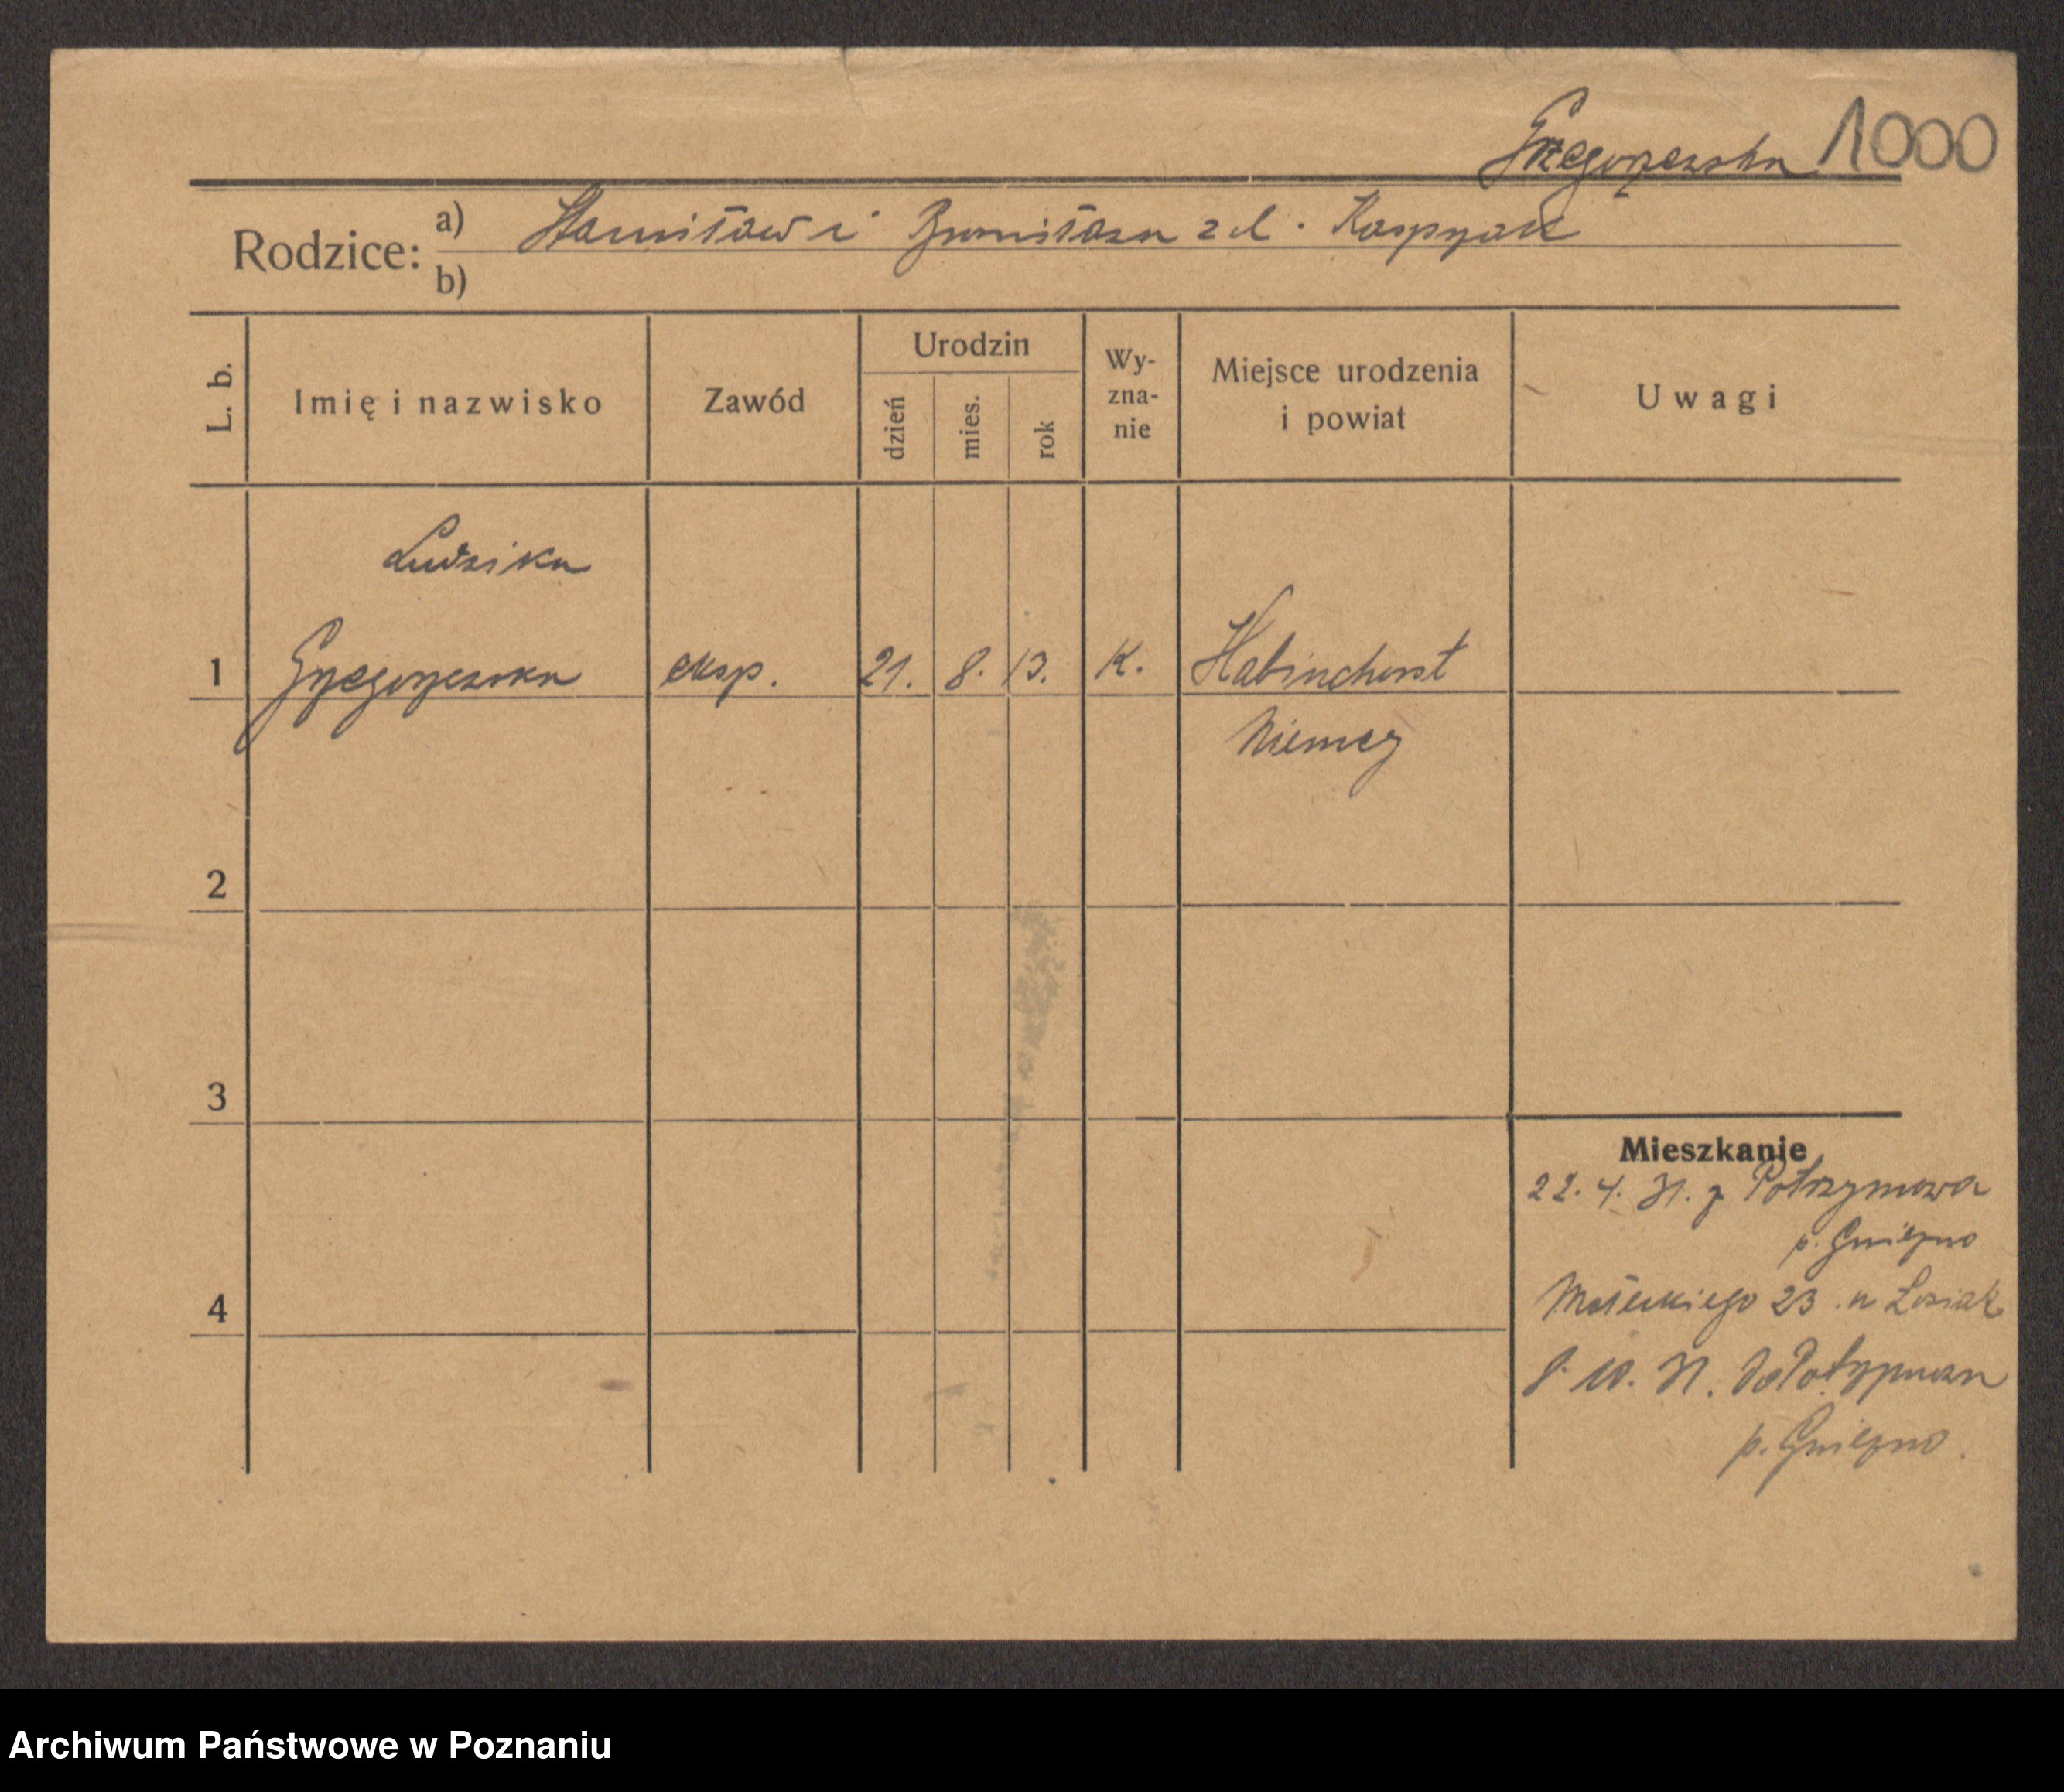 Grzegorzewska 1000
Rodzice: a) Stanisław i Bronisława z d. Kasprzak
b)
L. b. Imię i nazwisko Zawód Urodzin dzień mies. rok Wy-zna-nie Miejsce urodzenia i powiat Uwagi
Ludwika
1 Grzegorzewska eksp. 21. 8. 13. K. Habinchorst
Niemcy
2
3
Mieszkanie
22. 4. 31. z Potrzymowa
p. Gniezno
4 23 u Losiak
8. 10. 31. do Potrzymowa
p. Gniezno.
Archiwum Państwowe w Poznaniu